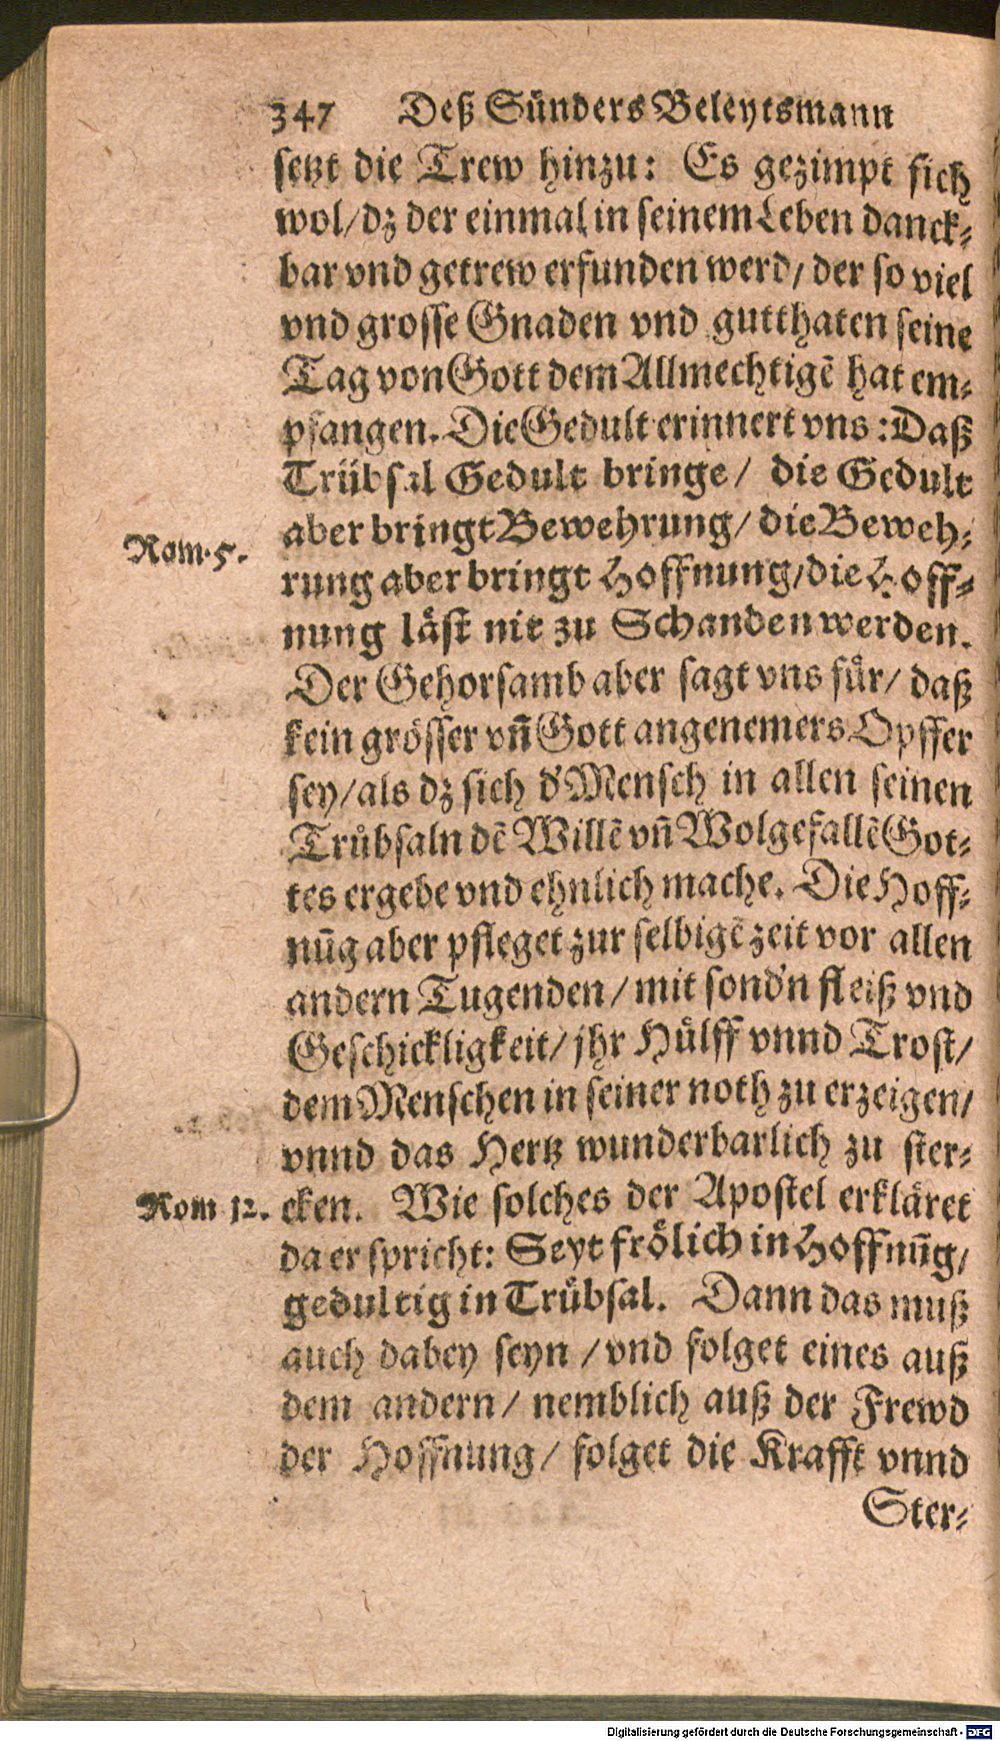 347 Deß Sünders Beleytsmann
setzt die Trew hinzu: Es gezimpt sich
wol/dz der einmal in seinem Leben danck-
bar vnd getrew erfunden werd/ der so viel
vnd grosse Gnaden vnd gutthaten seine
Tag von Gott dem Allmechtigē hat em-
pfangen. Die Gedult erinnert vns: Daß
Trübsal Gedult bringe/ die Gedult
aber bringt Bewehrung/ die Beweh-
Rom. 5.
rung aber bringt Hoffnung/die Hoff-
nung läst nit zu Schanden werden.
Der Gehorsamb aber sagt vns für/ daß
kein grösser vñ Gott angenemers Opffer
sey/als dz sich d' Mensch in allen seinen
Trübsaln dē Willē vñ Wolgefallē Got-
tes ergebe vnd ehnlich mache. Die Hoff-
nūg aber pfleget zur selbigē zeit vor allen
andern Tugenden/ mit sond'n fleiß vnd
Geschickligkeit/ jhr Hülff vnnd Trost/
dem Menschen in seiner noth zu erzeigen/
vnnd das Hertz wunderbarlich zu ster-
Rom 12. cken. Wie solches der Apostel erkläret
da er spricht: Seyt frölich in Hoffnūg/
gedultig in Trübsal. Dann das muß
auch dabey seyn / vnd folget eines auß
dem andern/ nemblich auß der Frewd
der Hoffnung/ folget die Krafft vnnd
Ster-
Digitalisierung gefördert durch die Deutsche Forschungsgemeinschaft - DFG